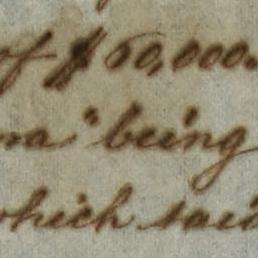 of $60,000.
na" being
which said